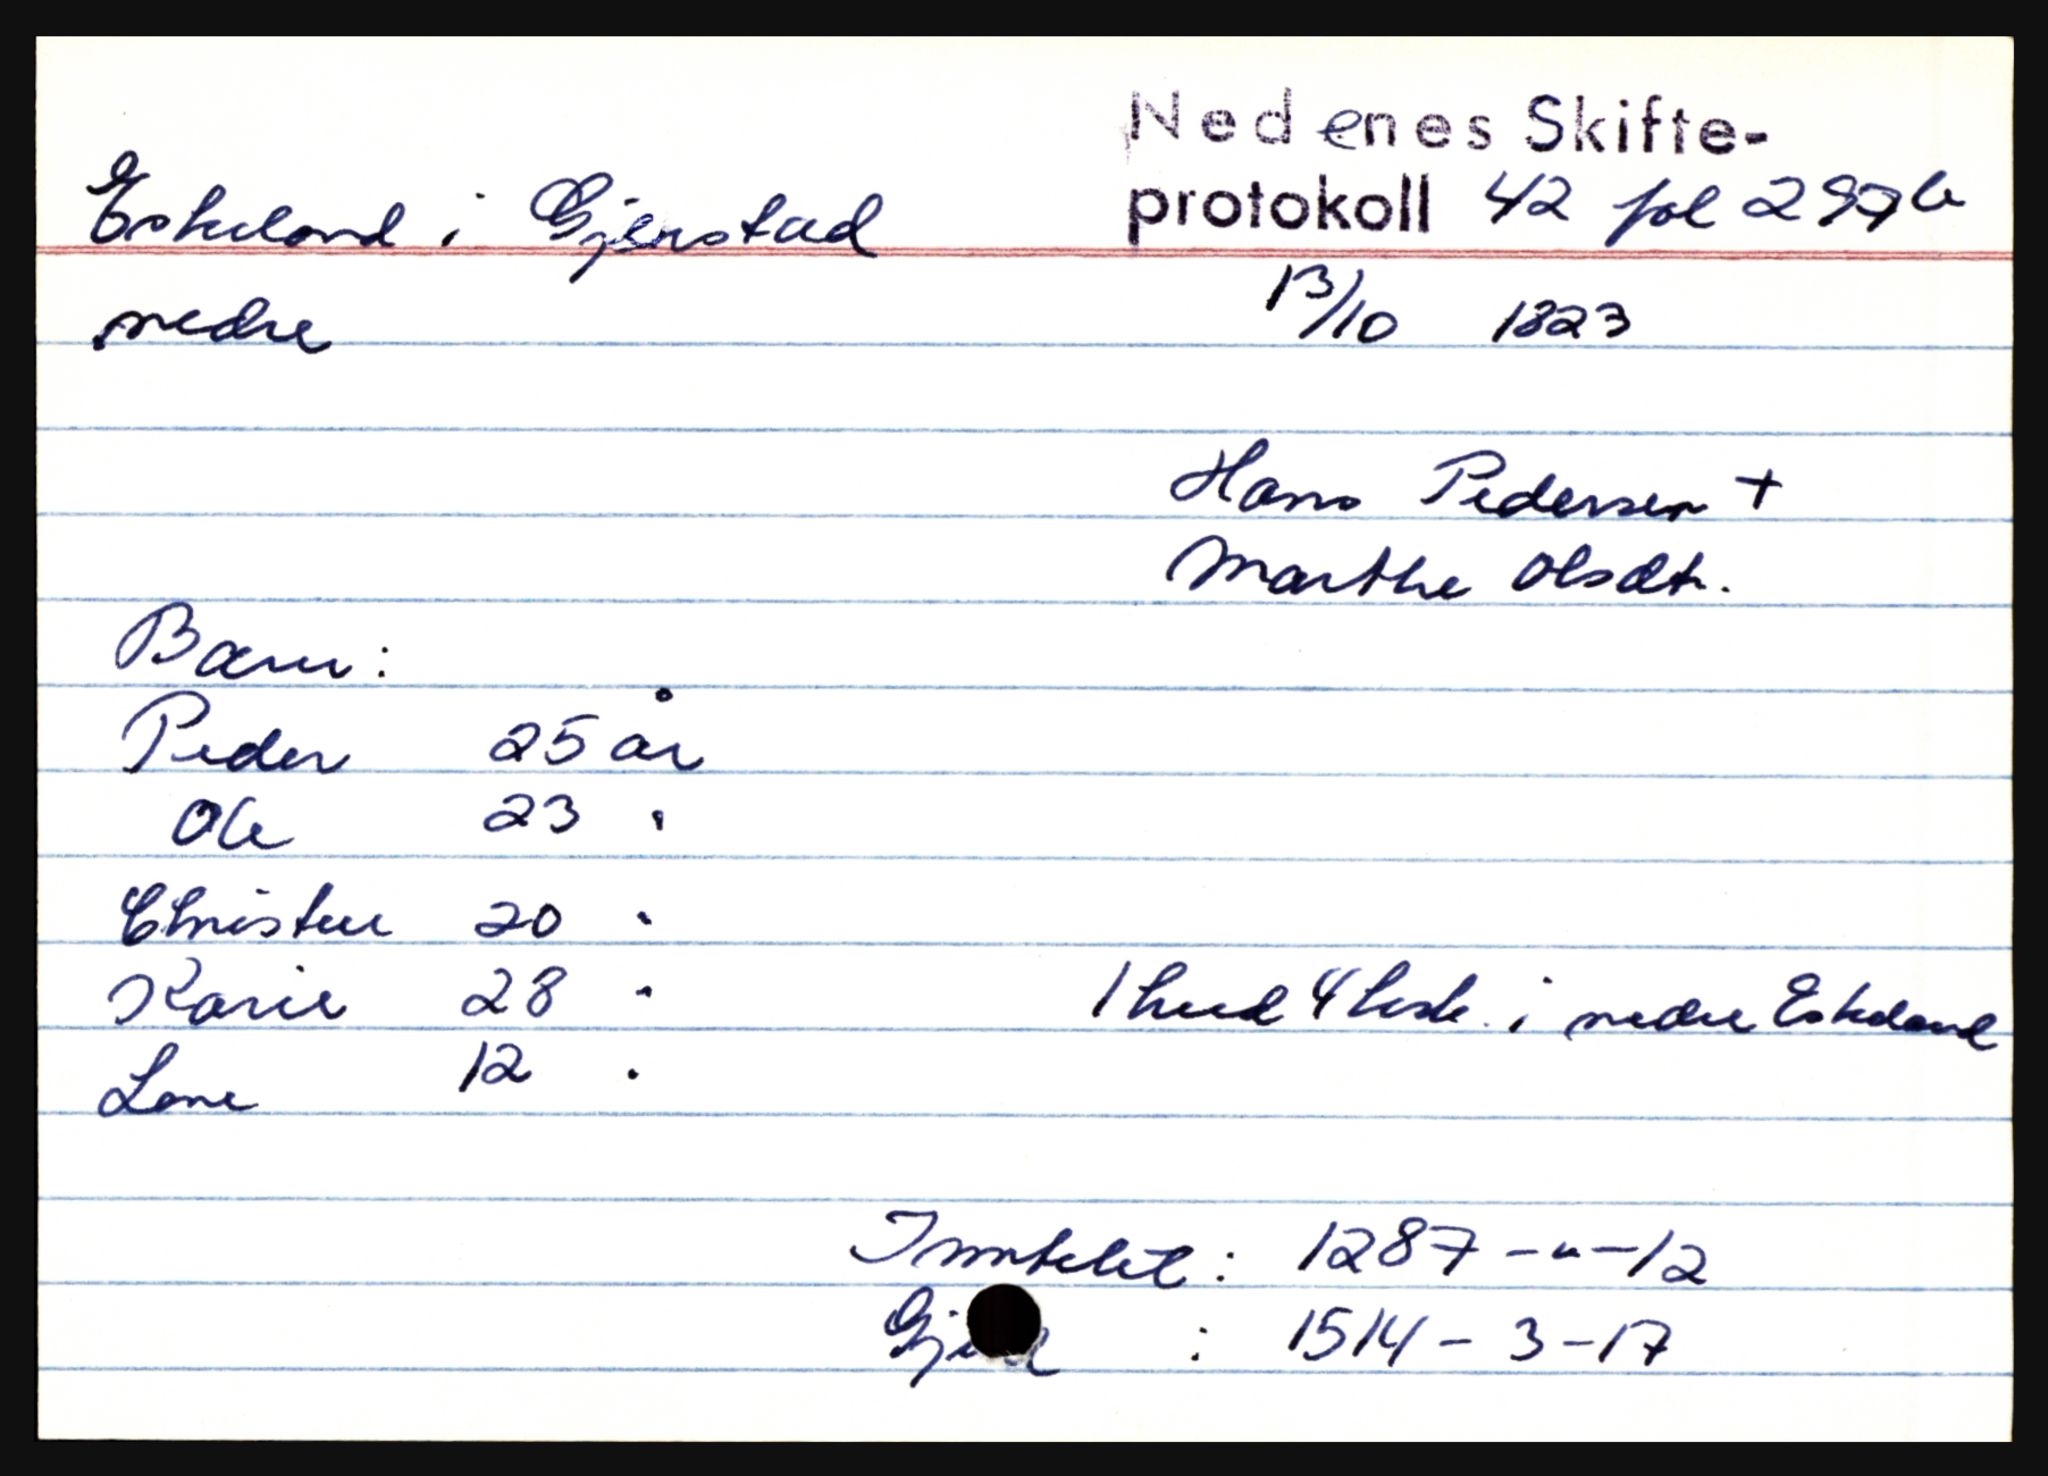 Nedenes Skifte-
Eskeland i Gjerstad protokoll 42 fol 297b
nedre 13/10 1823
Hans Pedersen +
Marthe Olsdtr.
Barn:
Peder 25 år
Ole 23 "
Christen 20 "
Karie 28 " 1 hud 4 ksk. i nedre Eskeland
Lene 12 "
Inntekt: 1287 - " - 12
Gjeld : 1514 - 3 - 17